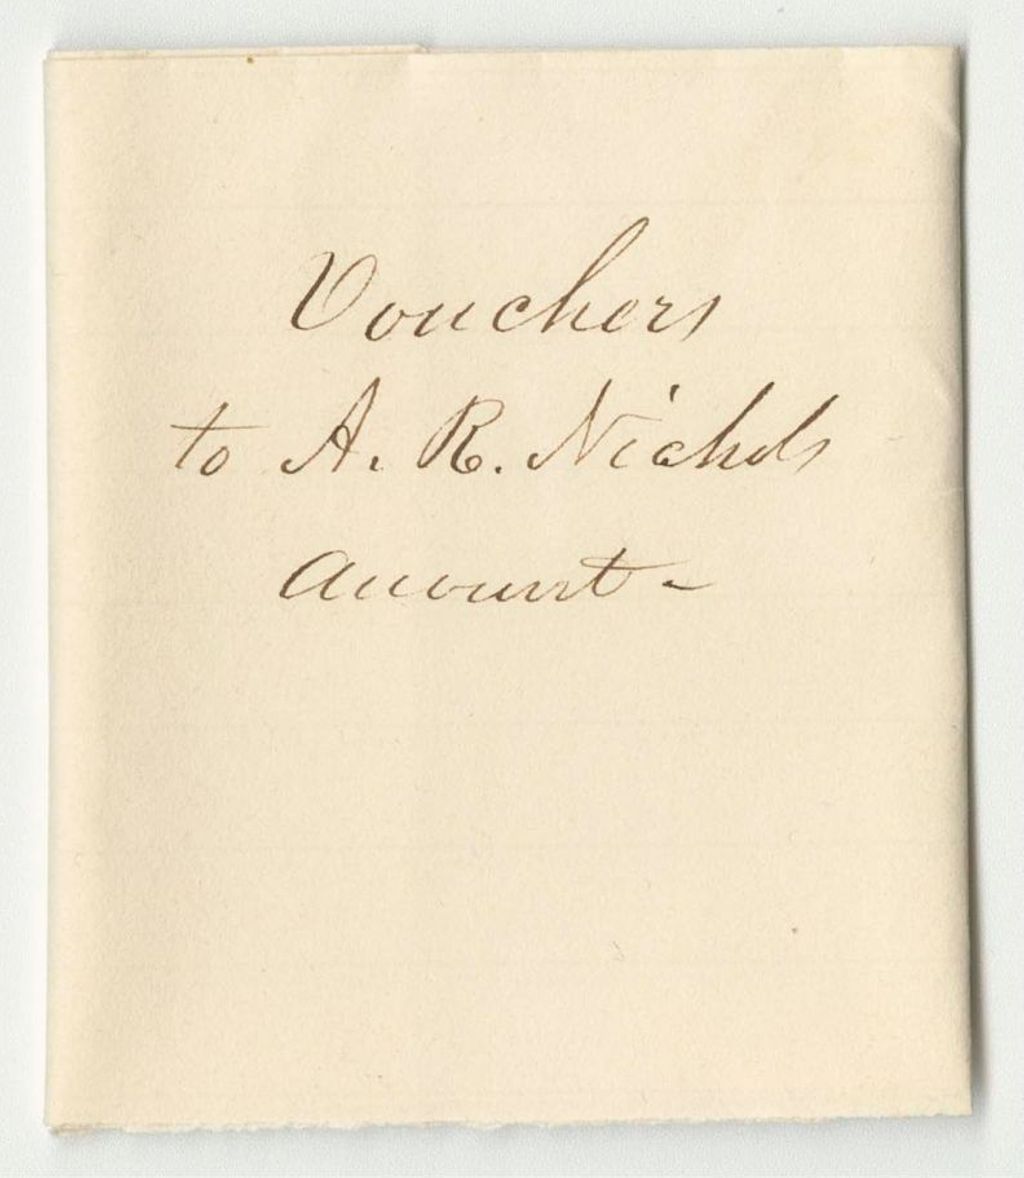 Vouchers
to A. R. Nichols
account -